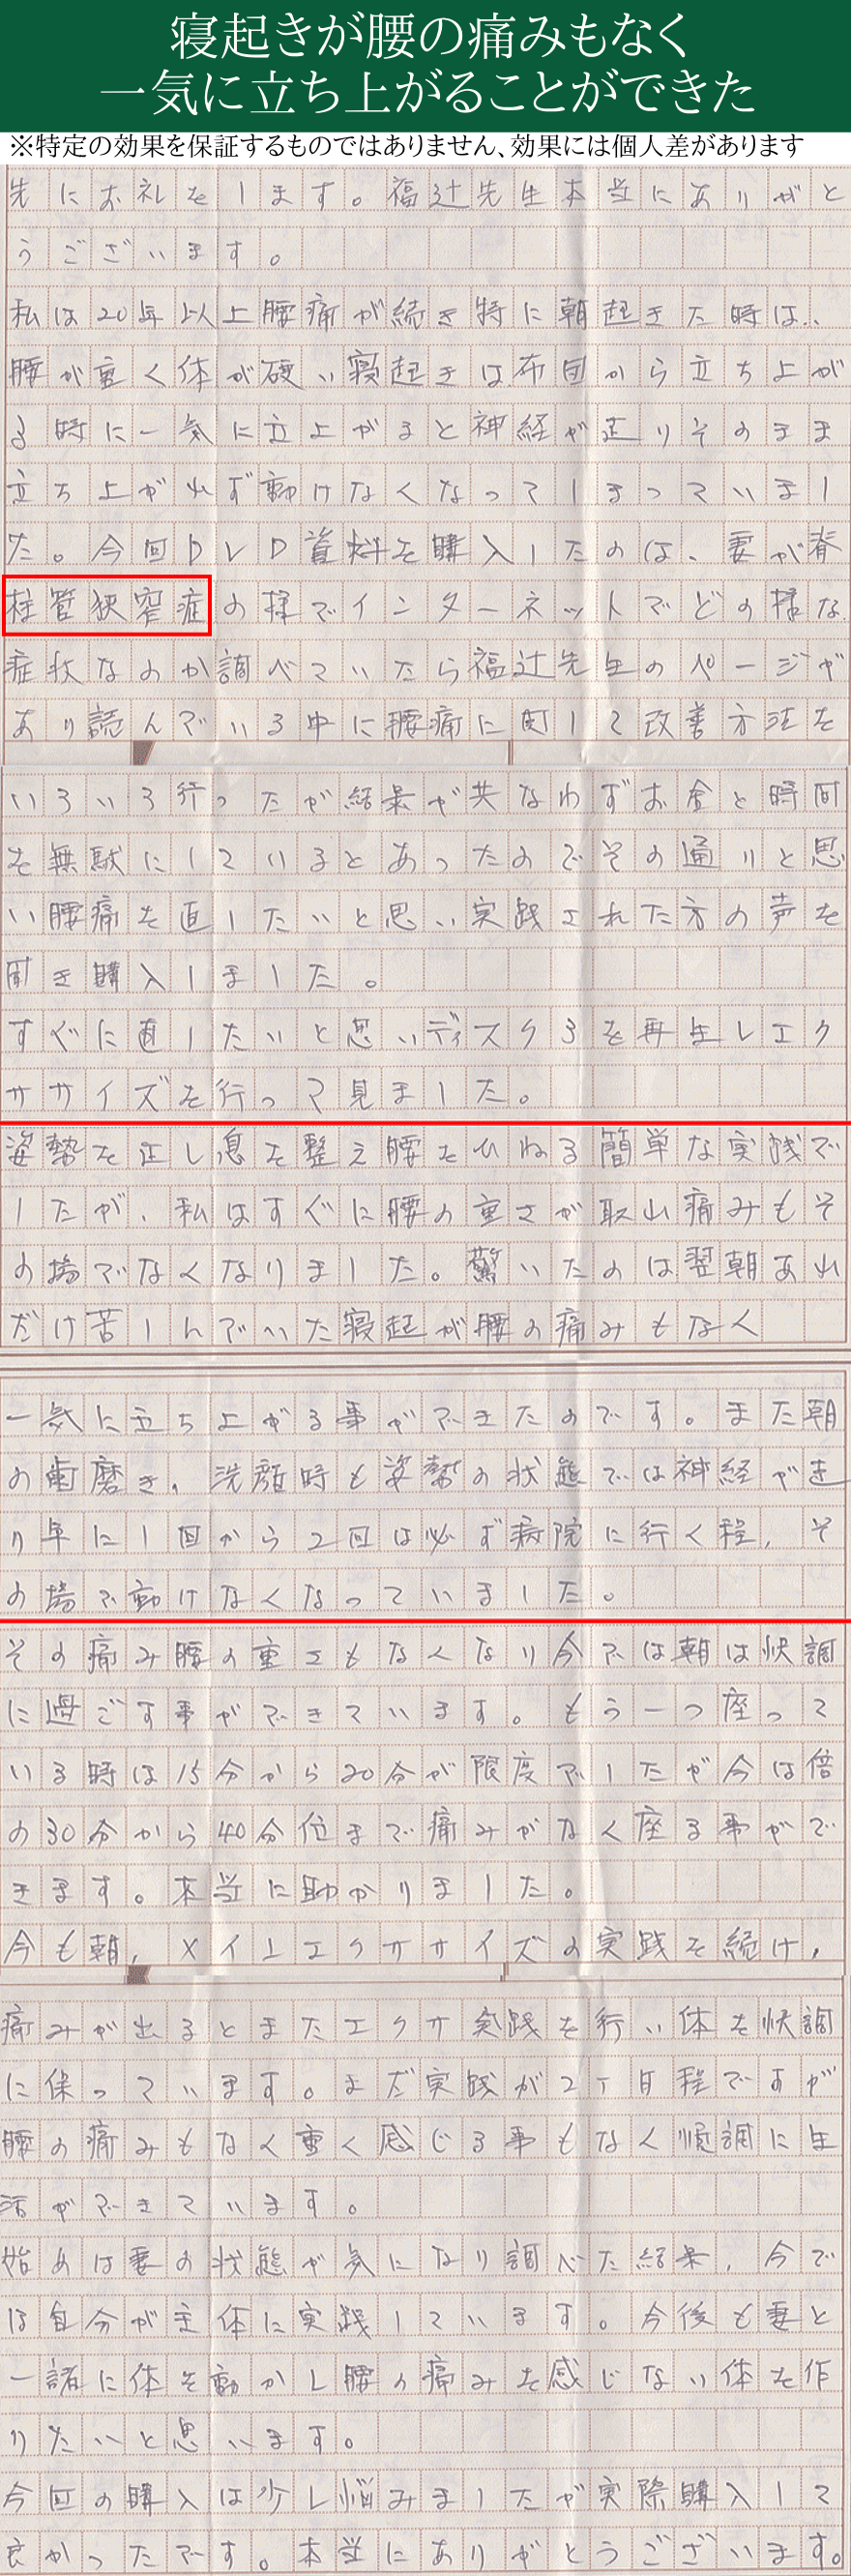 寝起きが腰の痛みもなく
一気に立ち上がることができた
※特定の効果を保証するものではありません、効果には個人差があります
先にお礼をします。福辻先生本当にありがと
うございます。
私は20年以上腰痛が続き特に朝起きた時は、
腰が重く体が硬い寝起きは布団から立ち上が
る時に一気に立上がると神経が走りそのまま
立ち上がれず動けなくなってしまっていまし
た。今回DVD資料を購入したのは、妻が脊
柱管狭窄症の様でインターネットでどの様な
症状なのか調べていたら福辻先生のページが
あり読んでいる中に腰痛に対して改善方法を
いろいろ行ったが結果が共なわずお金と時間
を無駄にしているとあったのでその通りと思
い腰痛を直したいと思い実践された方の声を
聞き購入しました。
すぐに直したいと思いディスク3を再生しエク
ササイズを行って見ました。
姿勢を正し息を整え腰をひねる簡単な実践で
したが、私はすぐに腰の重さが取れ痛みもそ
の場でなくなりました。驚いたのは翌朝あれ
だけ苦しんでいた寝起が腰の痛みもなく
一気に立ち上がる事ができたのです。また朝
の歯磨き、洗顔時も姿勢の状態では神経が走
り年に1回から2回は必ず病院に行く程、そ
の場で動けなくなっていました。
その痛み腰の重さもなくなり今では朝は快調
に過ごす事ができています。もう一つ座って
いる時は15分から20分が限度でしたが今は倍
の30分から40分位まで痛みがなく座る事がで
きます。本当に助かりました。
今も朝、メインエクササイズの実践を続け、
痛みが出るとまたエクサ実践を行い体を快調
に保っています。まだ実践が2ヶ月程ですが
腰の痛みもなく重く感じる事もなく順調に生
活ができています。
始めは妻の状態が気になり調べた結果、今で
は自分が主体に実践しています。今後も妻と
一諸に体を動かし腰の痛みを感じない体を作
りたいと思います。
今回の購入は少し悩みましたが実際購入して
良かったです。本当にありがとうございます。